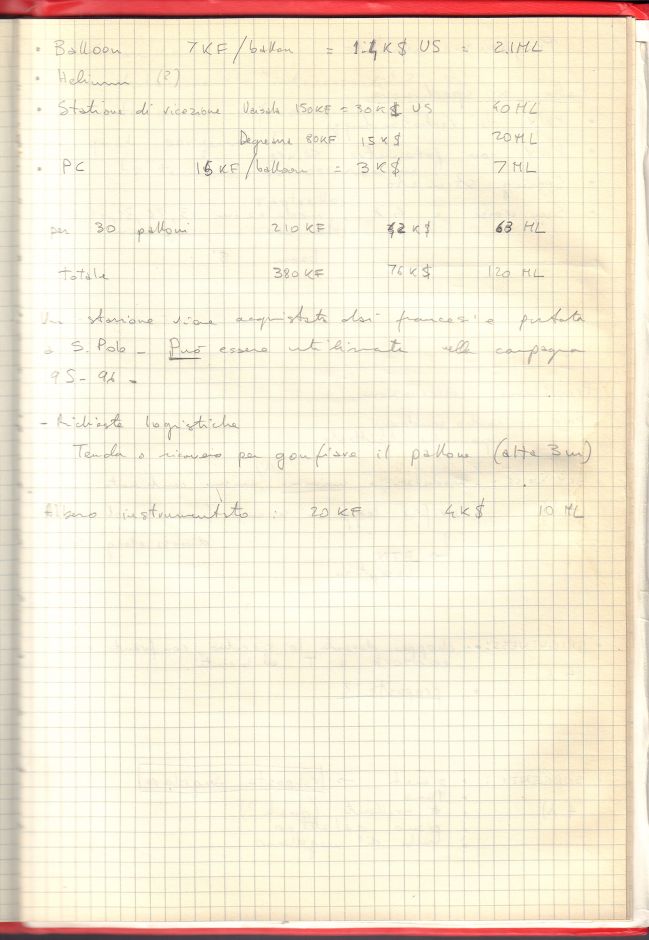 • Balloon 7 KF/ballon = 1.4 K$ US = 2.1 ML
• Helium (?)
• Stazione di ricezione Vaisala 150 KF = 30 K$ US 40 ML
80 KF 15 K$ 20 ML
• PC 15 KF/balloon = 3 K$ 7 ML
per 30 palloni 210 KF 42 K$ 63 ML
Totale 380 KF 76 K$ 120 ML
Una stazione viene acquistata dai francesi e portata
a S. Polo - Può essere utilizzata nella campagna
95-96 -
- Richieste logistiche
Tenda o ricovero per gonfiare il pallone (alta 3m)
instrumentato : 20 KF 4 K$ 10 ML